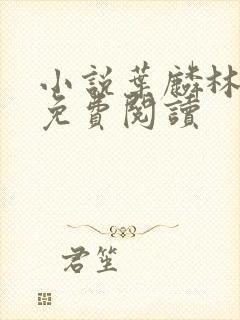 小說葉麟林
免費閱讀
君笙